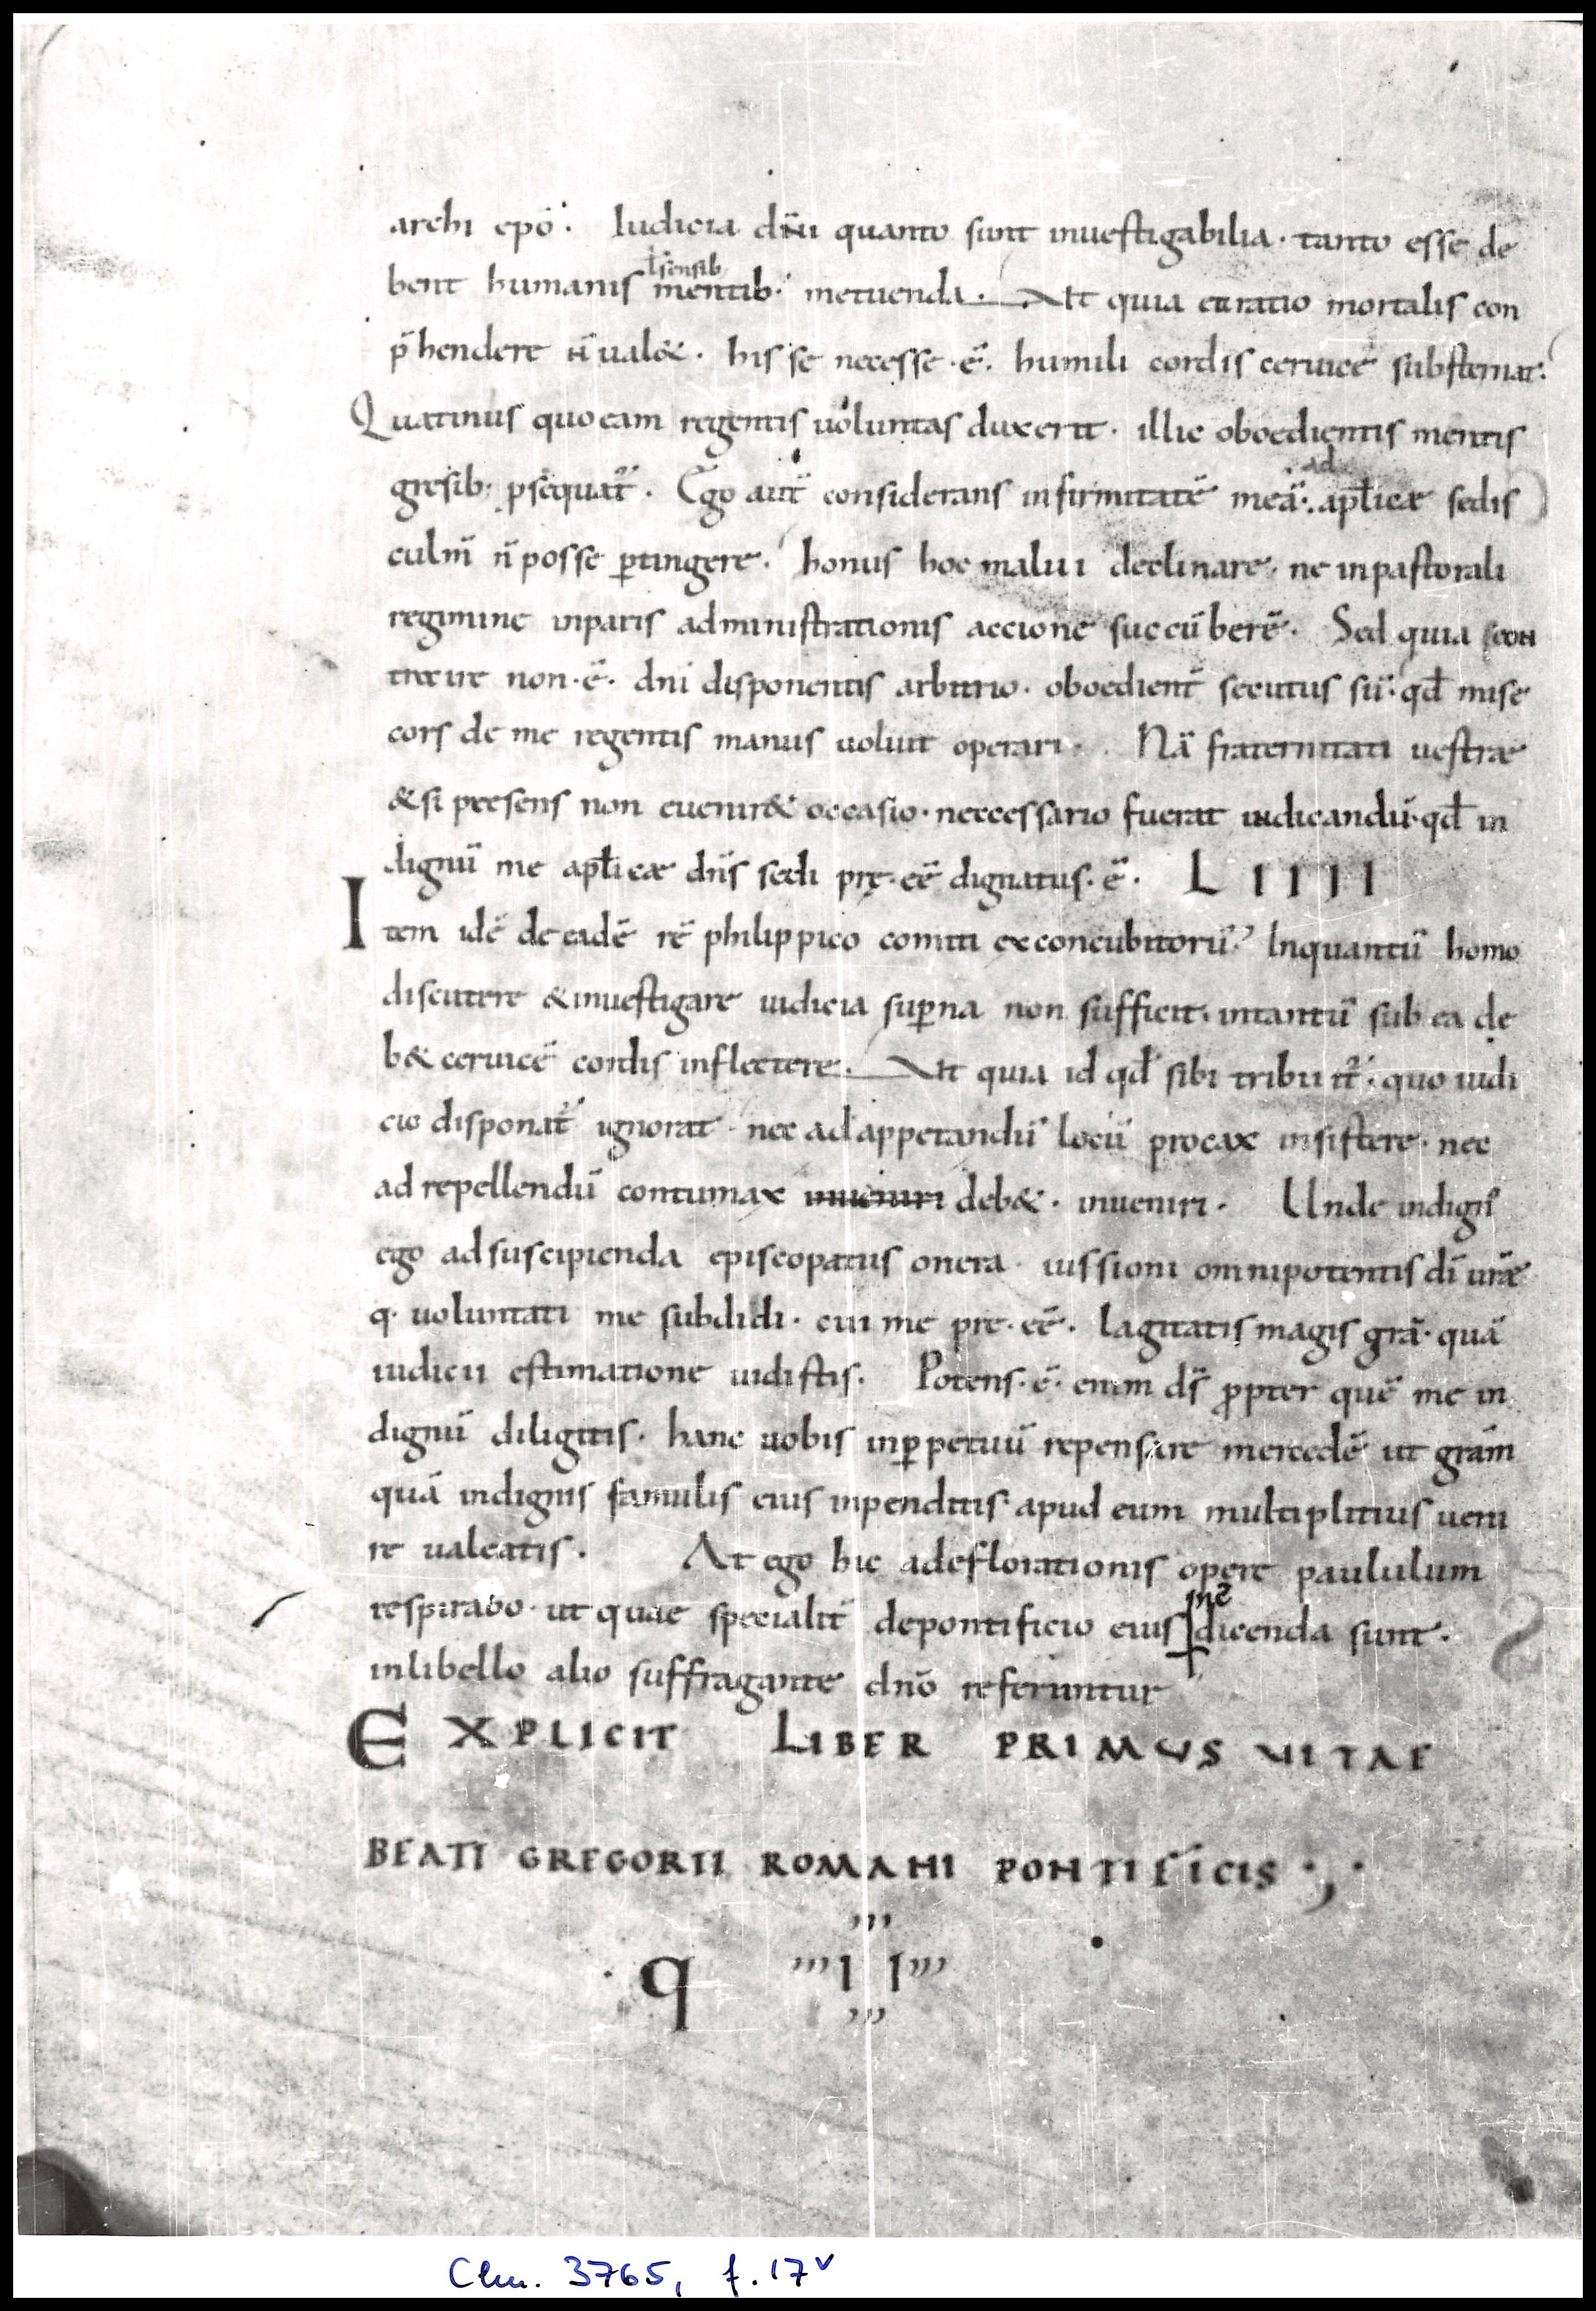 archi epō. Iudicia dn̄ni quanto sunt inuestigabilia. tanto esse de
ł sensib
bent humanis mentib: metuenda. Ut quia ea ratio mortalis con
p̄hendere n̄ ual&. his se necesse .ē. humili cordis ceruicē substernat.
Quatinus quo eam regentis uoluntas duxerit. illic oboedientis mentis
ad
gresib: p̱sequat̄. Ego aut̄ considerans infirmitatē meā. apłicae sedis
culm̄ n̄ posse p̱tingere. honus hoc malui declinare. ne in pastorali
regimine inparis administrationis accione succūberē. Sed quia
traire non .ē. dn̄i disponentis arbitrio. oboedient̄ secutus sū. qd̄ mise
cors de me regentis manus uoluit operari. Nā fraternitati uestrae
& si presens non euenir& occasio. neccessario fuerat indicandū. qd̄ in
dignū me apłicae dn̄s sedi prę .eē dignatus .ē. LIIII
Item idē de eadē rē philippico comiti ex concubitorū. Inquantū homo
discutere & inuestigare iudicia sup̱na non sufficit. intantū sub ea de
b& ceruicē cordis inflectere. Ut quia id qd̄ sibi tribuit̄. quo iudi
cio disponat̄ ignorat. nec ad appetandū locū procax insistere. nec
ad repellendū contumax inueniri deb&. inueniri. Unde indign̄
ego ad suscipienda episcopatus onera. iussioni omnipotentis dī urāe
q. uoluntati me subdidi. cui me pre .eē. lagitatis magis grā. quā
iudicii estimatione uidistis. Potens .ē. enim ds̄ p̱pter quē me in
dignū diligitis. hanc uobis inp̱petuū repensare mercedē ut grām
quā indignis famulis eius inpenditis. apud eum multiplitius ueni
re ualeatis. At ego hic adeflorationis opere paululum
me
respirabo. ut quae specialit̄ de pontificio eius dicenda sunt.
in libello alio suffragante dnō referuntur
EXPLICIT LIBER PRIMUS VITAE
BEATI GREGORII ROMANI PONTIFICIS
q II
Clm. 3765, f. 17v